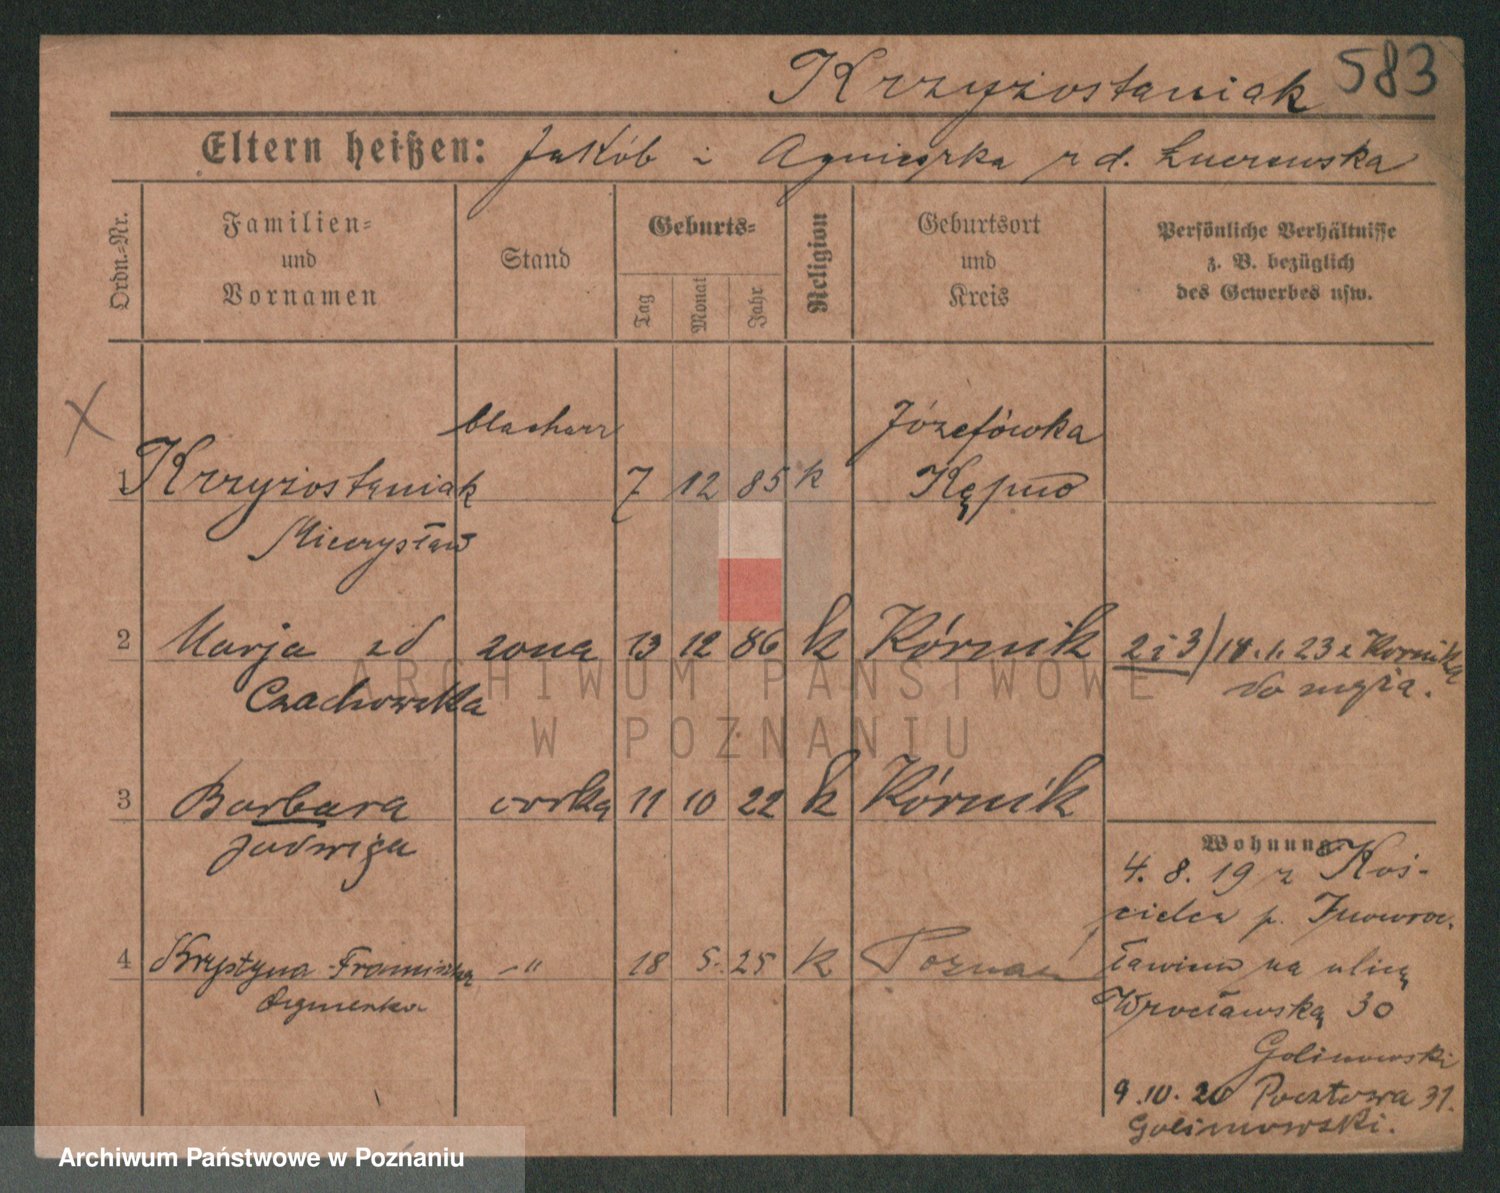 Krzyżostaniak 583
Eltern heißen: Jakób i Agnieszka z d. Łuczewska
Ordn.-Nr.
Familien-
und
Vornamen
Stand
Geburts-
Tag
Monat
Jahr
Religion
Geburtsort
und
Kreis
Persönliche Verhältnisse
z. B. bezüglich
des Gewerbes usw.
blacharz Józefówka
1 Krzyżostaniak 7 12 85 k Kępno
Mieczysław
2 Marja zd żona 13 12 86 k Kórnik 2 i 3) 18.1.23 z Kórnika
Czachowska do męża.
3 Barbara córka 11 10 22 k Kórnik
Jadwiga
Wohnung:
4. 8. 19 z Koś-
cielca p. Inowroc-
4 Krystyna Franciszka -„- 18 5. 25 k Poznań ławiem na ulicę
Wrocławską 30
Golimowski
9.10.20 Pocztowa 31.
Golimowski.
ARCHIWUM PAŃSTWOWE
W POZNANIU
Archiwum Państwowe w Poznaniu